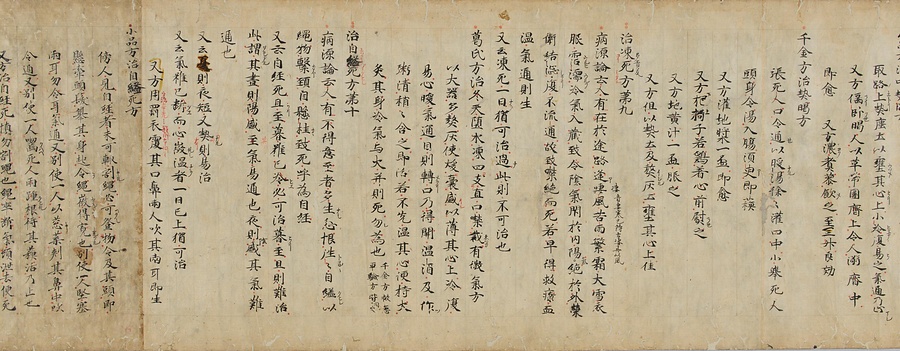 取路上熱塵土以壅其心上小冷復易之氣通乃止
千金方治熱暍方
又方仰臥暍人以草帶圍齊上令人溺齊中
即愈 又方濃煮蓼飲之至三升良効
張死人口令通以暖湯徐々灌口中小舉死人
頭身令湯入腸須臾即蘇
又方灌地漿一盃即愈
又方地黃汁一盃服之
又方但以熱土及熱灰土壅其心上佳
治凍死方第九
病源論云人有在於途路逢凄風苦雨繁霜大雪衣
服霑濡冷氣入藏致令陰氣閇於內陽絕於外榮
衛結澁不復流通故噤絕而死若早得救療血
溫氣通則生
又云凍死一日猶可治過此則不可治也
葛氏方治冬天墮水凍四支直口噤裁有微氣方
以大器多熬灰使煖囊盛以薄其心上冷復
易心暖氣通目則轉口乃得開溫消及作
粥清稍々含之即活若不先溫其心便持火
灸其身冷氣與火爭則死勿為也
治自縊死方第十
病源論云人有不得意志者多生忿恨往々自縊以
繩物繫頸自懸挂致死呼為自經
又云自經死旦至暮雖已冷必可治暮至旦則難治
此謂其晝則陽盛其氣易通也夜則威其氣難
通也
又云夏則夜短又熱則易治
又云氣雖已斷而心微溫者一日已上猶可治
又方用罽衣覆其口鼻兩人吹其兩耳即生
小品方治自縊死方
傍人見自經者未可輒割繩必可登物令及其頭即
懸牽頭髮舉其身起令繩寬得寬也別使人堅塞
兩耳勿令耳氣通又別使一人以葱葉刾其鼻中吹
令通別使一人
又治自經死慎勿割繩繩卒斷氣煩泄去便死